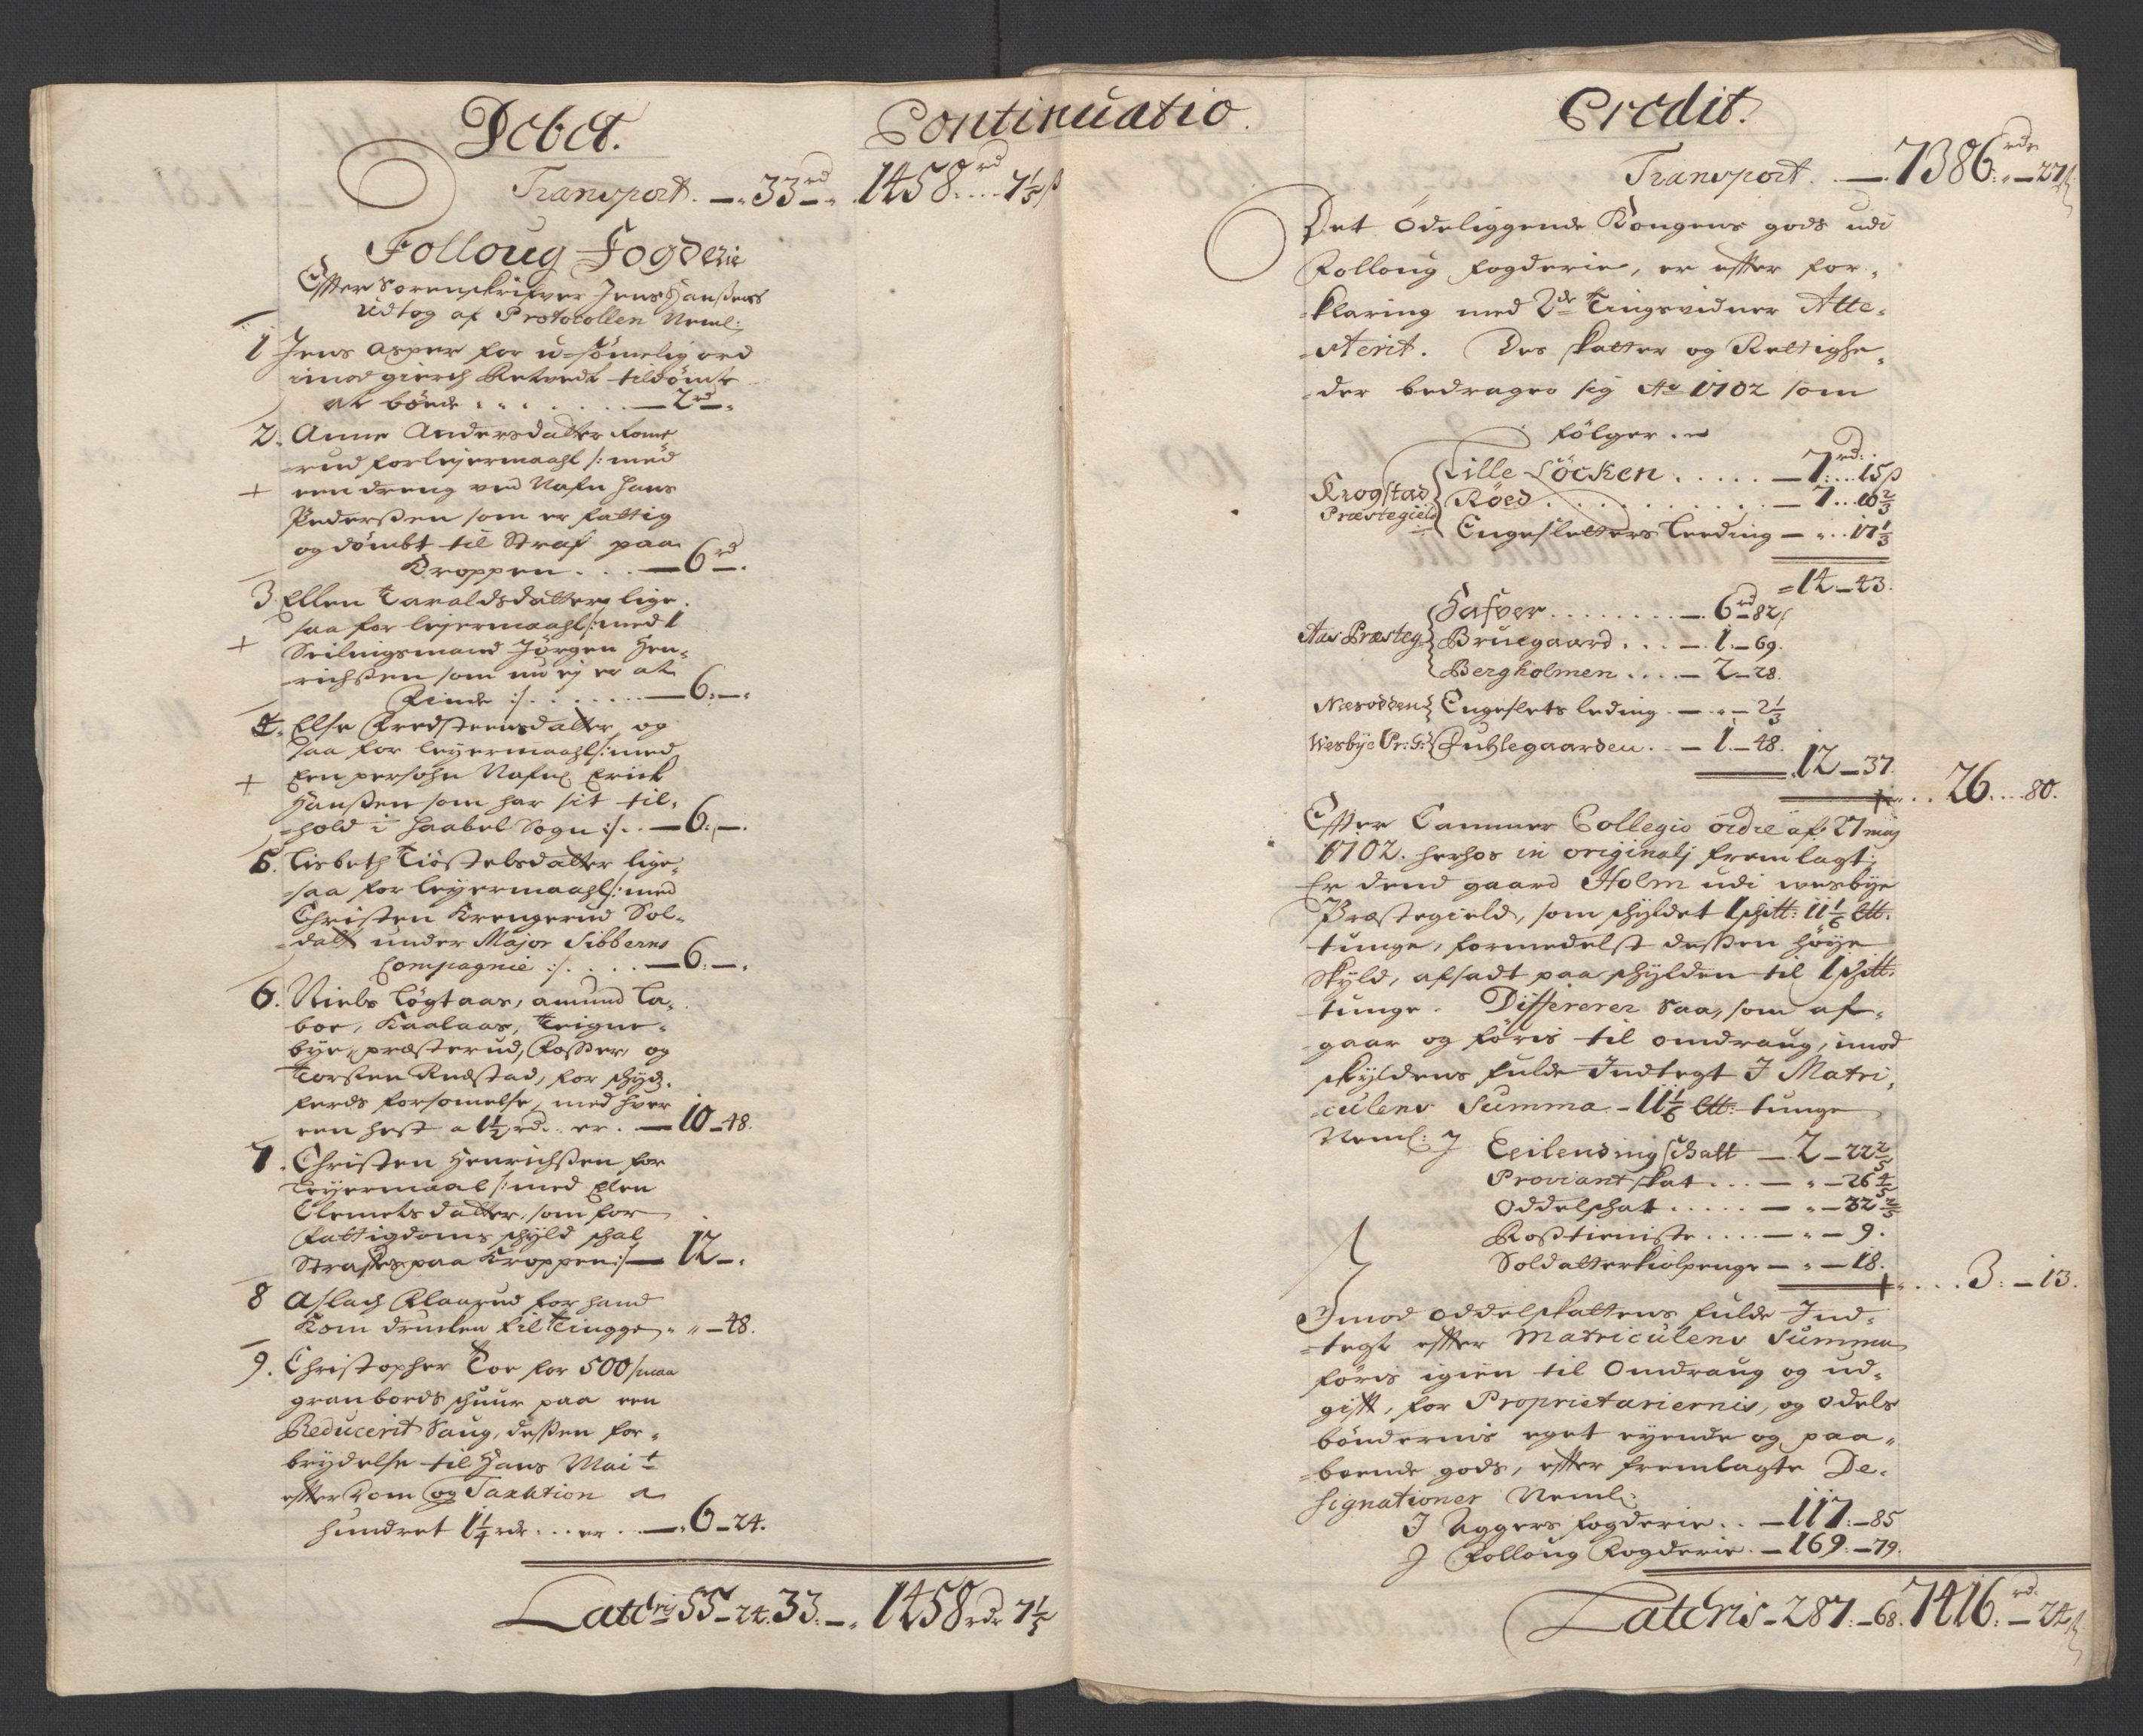 Debet.
Continuatio.
Transport. — 33 rd — 1458 rd .... 7 1/5 ß
Folloug Fogderie
Effter Sorenskrifver Jens Hanßens
Udtog af Protocollen Neml:
1 Jens Asper for u-sømelig ord
imod gierch tildømte
at bøde . . . . . — 2 rd — .
2. Anne Andersdatter
rud forleyermaahl /: med
+ een dreng ved Nafn Hans
Pederßen som er fattig
og dømbt til Straf paa
Kroppen . . . — 6 rd — .
3 Ellen Taraldsdatter lige-
saa for leyermaahl /: med 1
+ Seilingsmand Jørgen Hen-
richßen som nu ej er at
finde :/ . . . . . — 6: — .
4. Else Fredsteensdatter og
saa for leyermaahl /: med
+ Een persohn Nafnl: Erick
Hanßen som har sit til-
hold i Haabel Sogn :/ . . — 6: — .
5. Lisbeth Kiøstelsdatter lige-
saa for leyermaahl /: med
Christen Krengerud Sol-
datt under Major Sibberns
Compagnie :/ . . . . — 6: — .
6. Niels Løgtaas, Amund La-
boe, Kaalaas, Teigne-
bye, præsterud, Foßer, og
Torsten Rudstad, for schyds-
ferds forsømelse, med hver
een hest a 1 1/2 rd. er . — 10 — 48.
7. Christen Henrichßen for
Leyermaal /: med Elen
Clemetsdatter, som for
Fattigdoms schyld schal
Straffes paa Kroppen :/ — 12 — .
8 Aslach Flaarud for hand
kom drucken til Tingge „ „ — 48.
9. Christopher Toe for 500 smaa
granbords schuur paa een
Reducerit Saug, deßen for-
brydelse til Hans Mait
effter Dom og Taxation a
hundret 1 1/4 rdr . . . er . . — 6 — 24.
Lateris 55 — 24. 33: — „ 1458 rdr 7 1/5
Credit.
Transport . — 7386 rdr „ — 27 ß
Det Ödeliggende Kongens gods udi
Folloug fogderie, er effter for-
klaring med 2de Tingsvidner Atte-
sterit. Des skatter og Rettighe-
der bedrager sig Ao 1702 som
følger . .
Krogstad Præstegield
Lille Løcken . . . . . — 7 rd: . . 15 ß
Röed . . . . . . . . . — 7 . . 10 2/3
Engesletters Leeding — „ . . 17 1/3
= 14 — 43.
Aas Præsteg:
Hafver . . . . . . . . — 6 rd — 82 ß
Bruegaard . . . — 1. — 69.
Bergholmen . . . . — 2 — 28.
Nesodden Engeslets leding . — „ — 2 1/3
Wesbye Pr: G: Juhlegaarden . . — 1. — 48.
12 — 37.
. . 26 . . . 80.
Effter Cammer Collegio ordre af 27 maj
1702. herhos in originalj fremlagt,
Er dend gaard Holm udi wesbye
Præstegield, som schyldet 1 schitt: 11 1/6 Ltt.
tunge, formedelst deßen høye
skyld, afsadt paa schylden til 1 schitt.
tunge . Differerer saa, som af-
gaar og føris til omdraug, imod
skyldens fulde Indtegt I Matri-
culens Summa - 11 1/6 Ltt: tunge
Neml: I Leilendingschatt — 2 — 22 2/5
Proviantskat . . . — „ — 26 4/5
Oddelschat . . . . . — „ — 32 2/5
Roßtieniste . . . . — „ — 9.
Soldatterkiolpenge — „ — 18.
. . . 3: — 13.
Imod oddelskattens fulde Ind-
tegt effter Matriculens Summa
føris igien til omdraug og ud-
gifft, for Proprietariernis, og odels
böndernis eget eyende og paa-
boende gods, effter fremlagte De-
signationer Neml:
I Aggers fogderie . . — 117: — 85
I Folloug Fogderie . — 169. — 79.
Lateris — 287: — 68. 7416 rd: — 24 ß